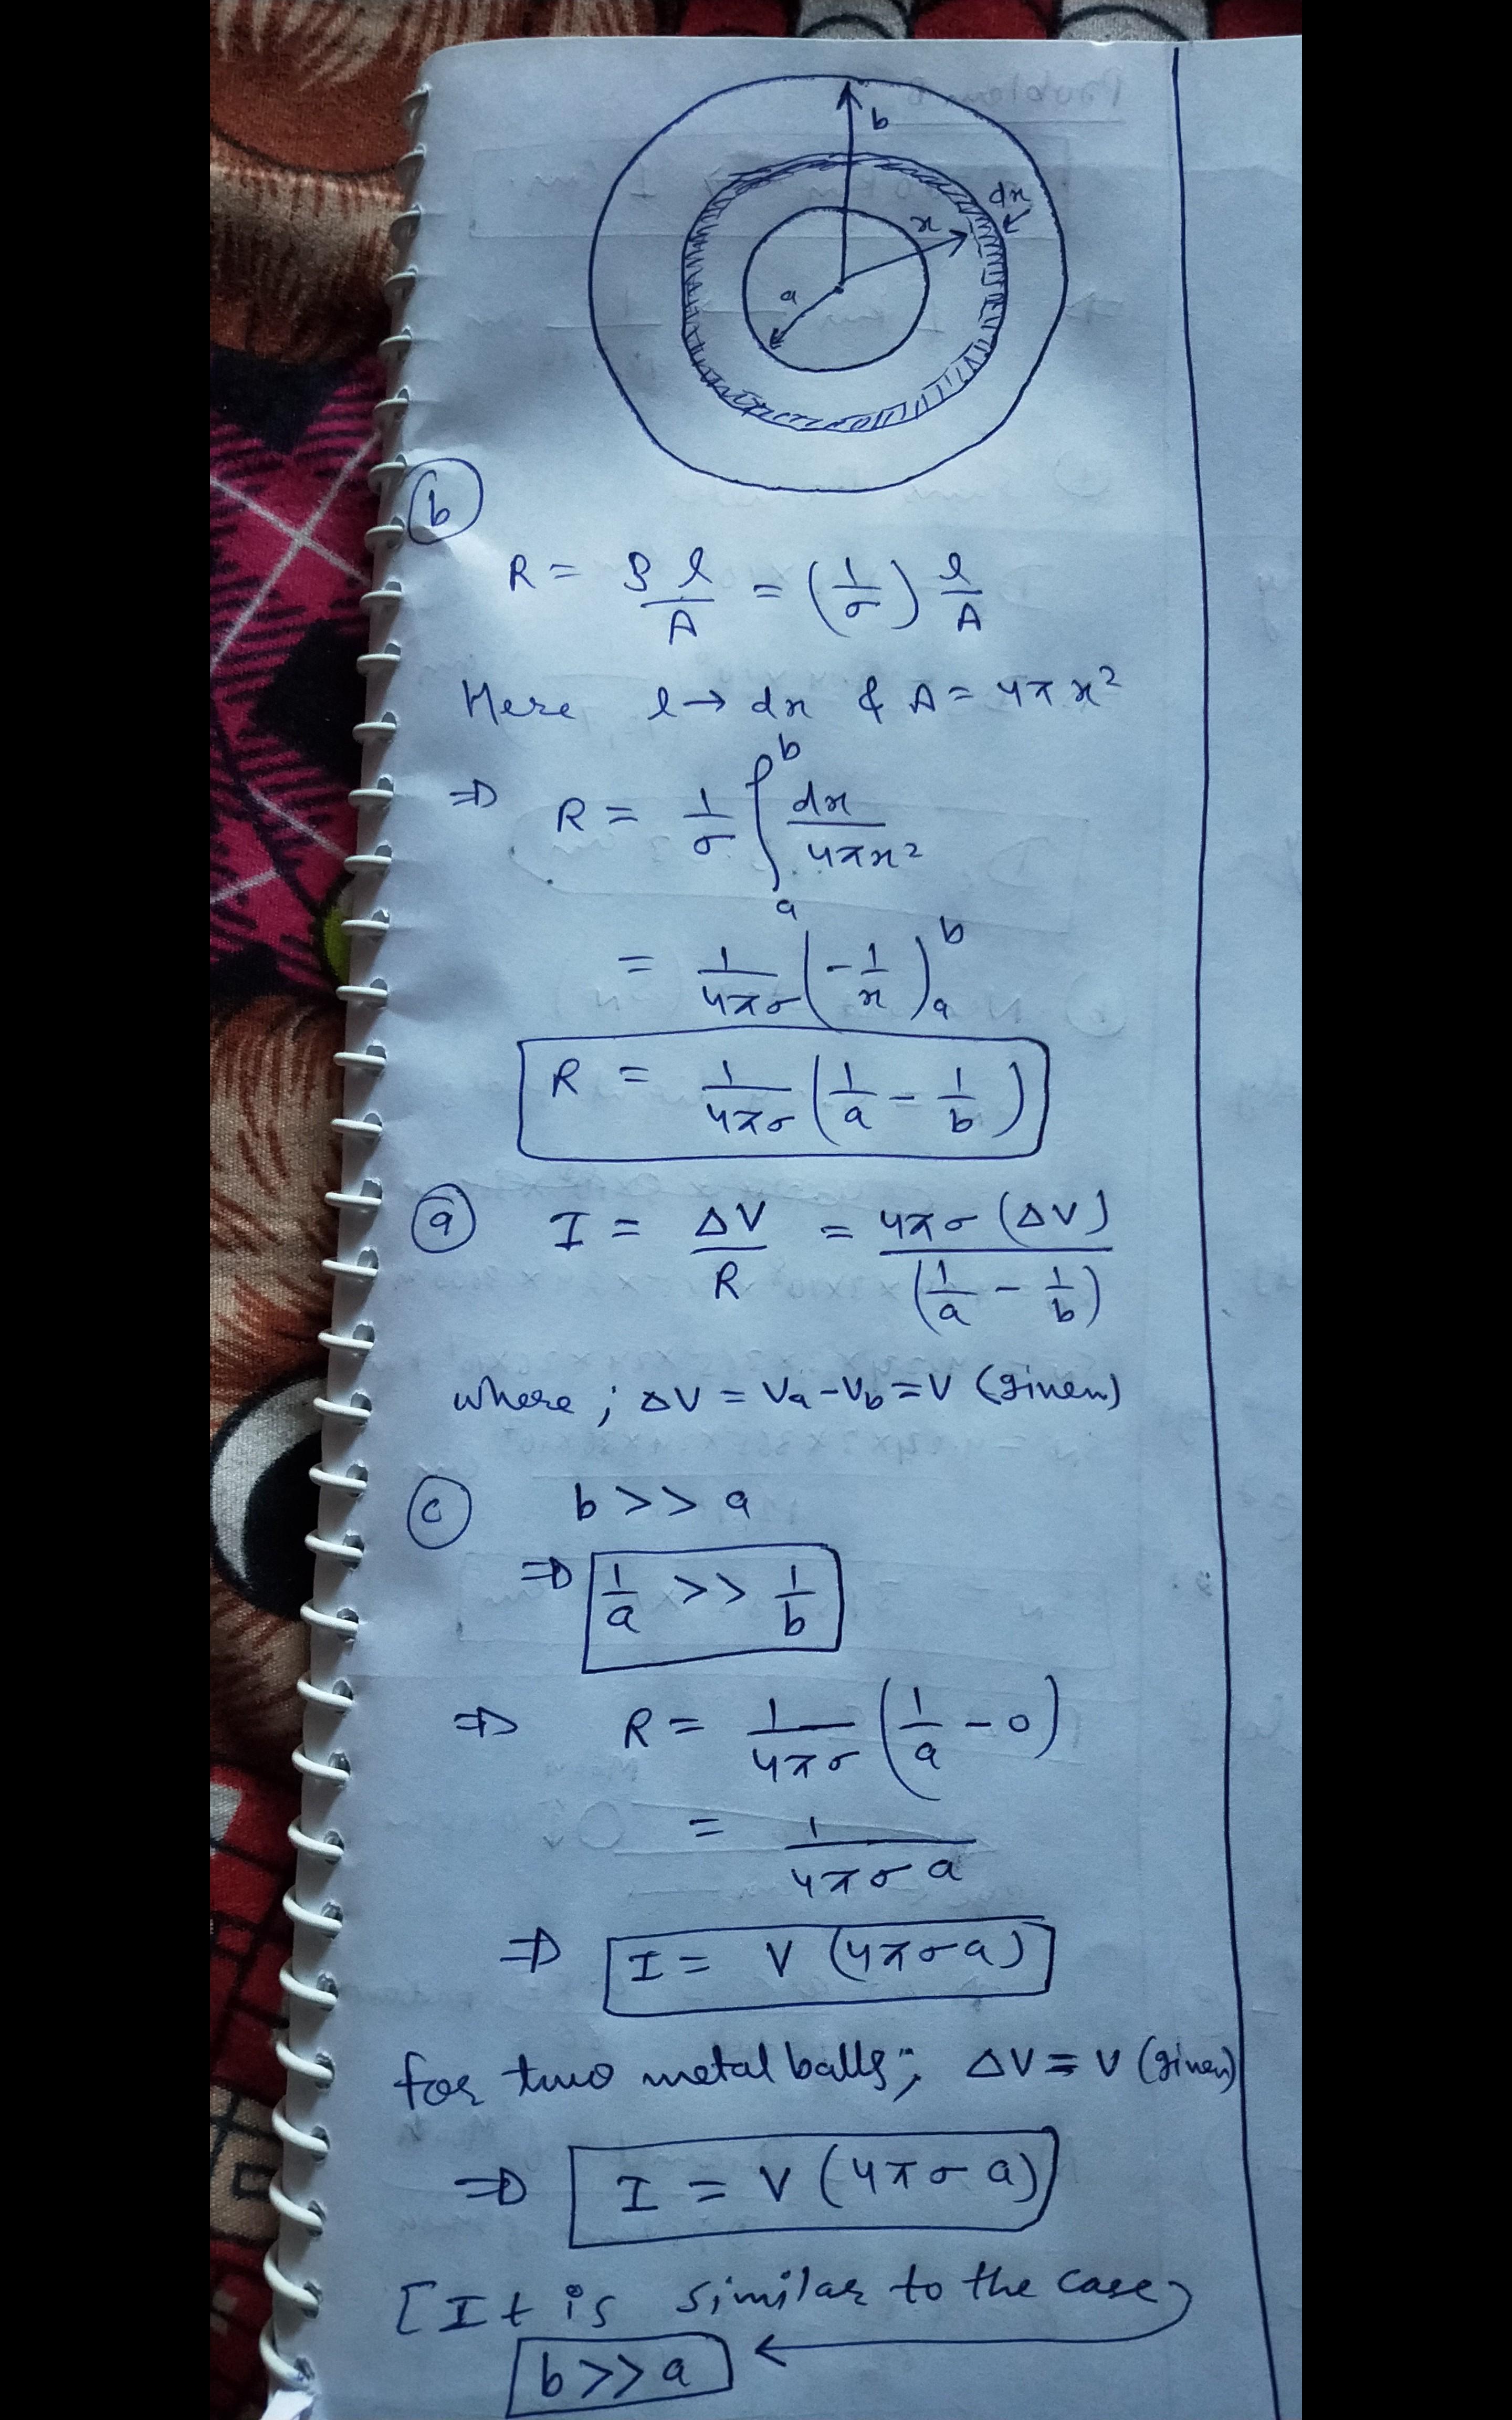 b
dx
x
a
(b)
R = ρl/A = (1/σ) l/A
Here l → dx & A = 4πx²
⇒ R = 1/σ ∫ₐᵇ dx/4πx²
= 1/4πσ (-1/x)ₐᵇ
R = 1/4πσ (1/a - 1/b)
(a) I = ΔV/R = 4πσ(ΔV)/(1/a - 1/b)
where ; ΔV = Va - Vb = V (given)
(c) b >> a
⇒ 1/a >> 1/b
⇒ R = 1/4πσ (1/a - 0)
= 1/4πσa
⇒ I = V (4πσa)
for two metal balls ; ΔV = V (given)
⇒ I = V (4πσa)
[It is similar to the case
b >> a